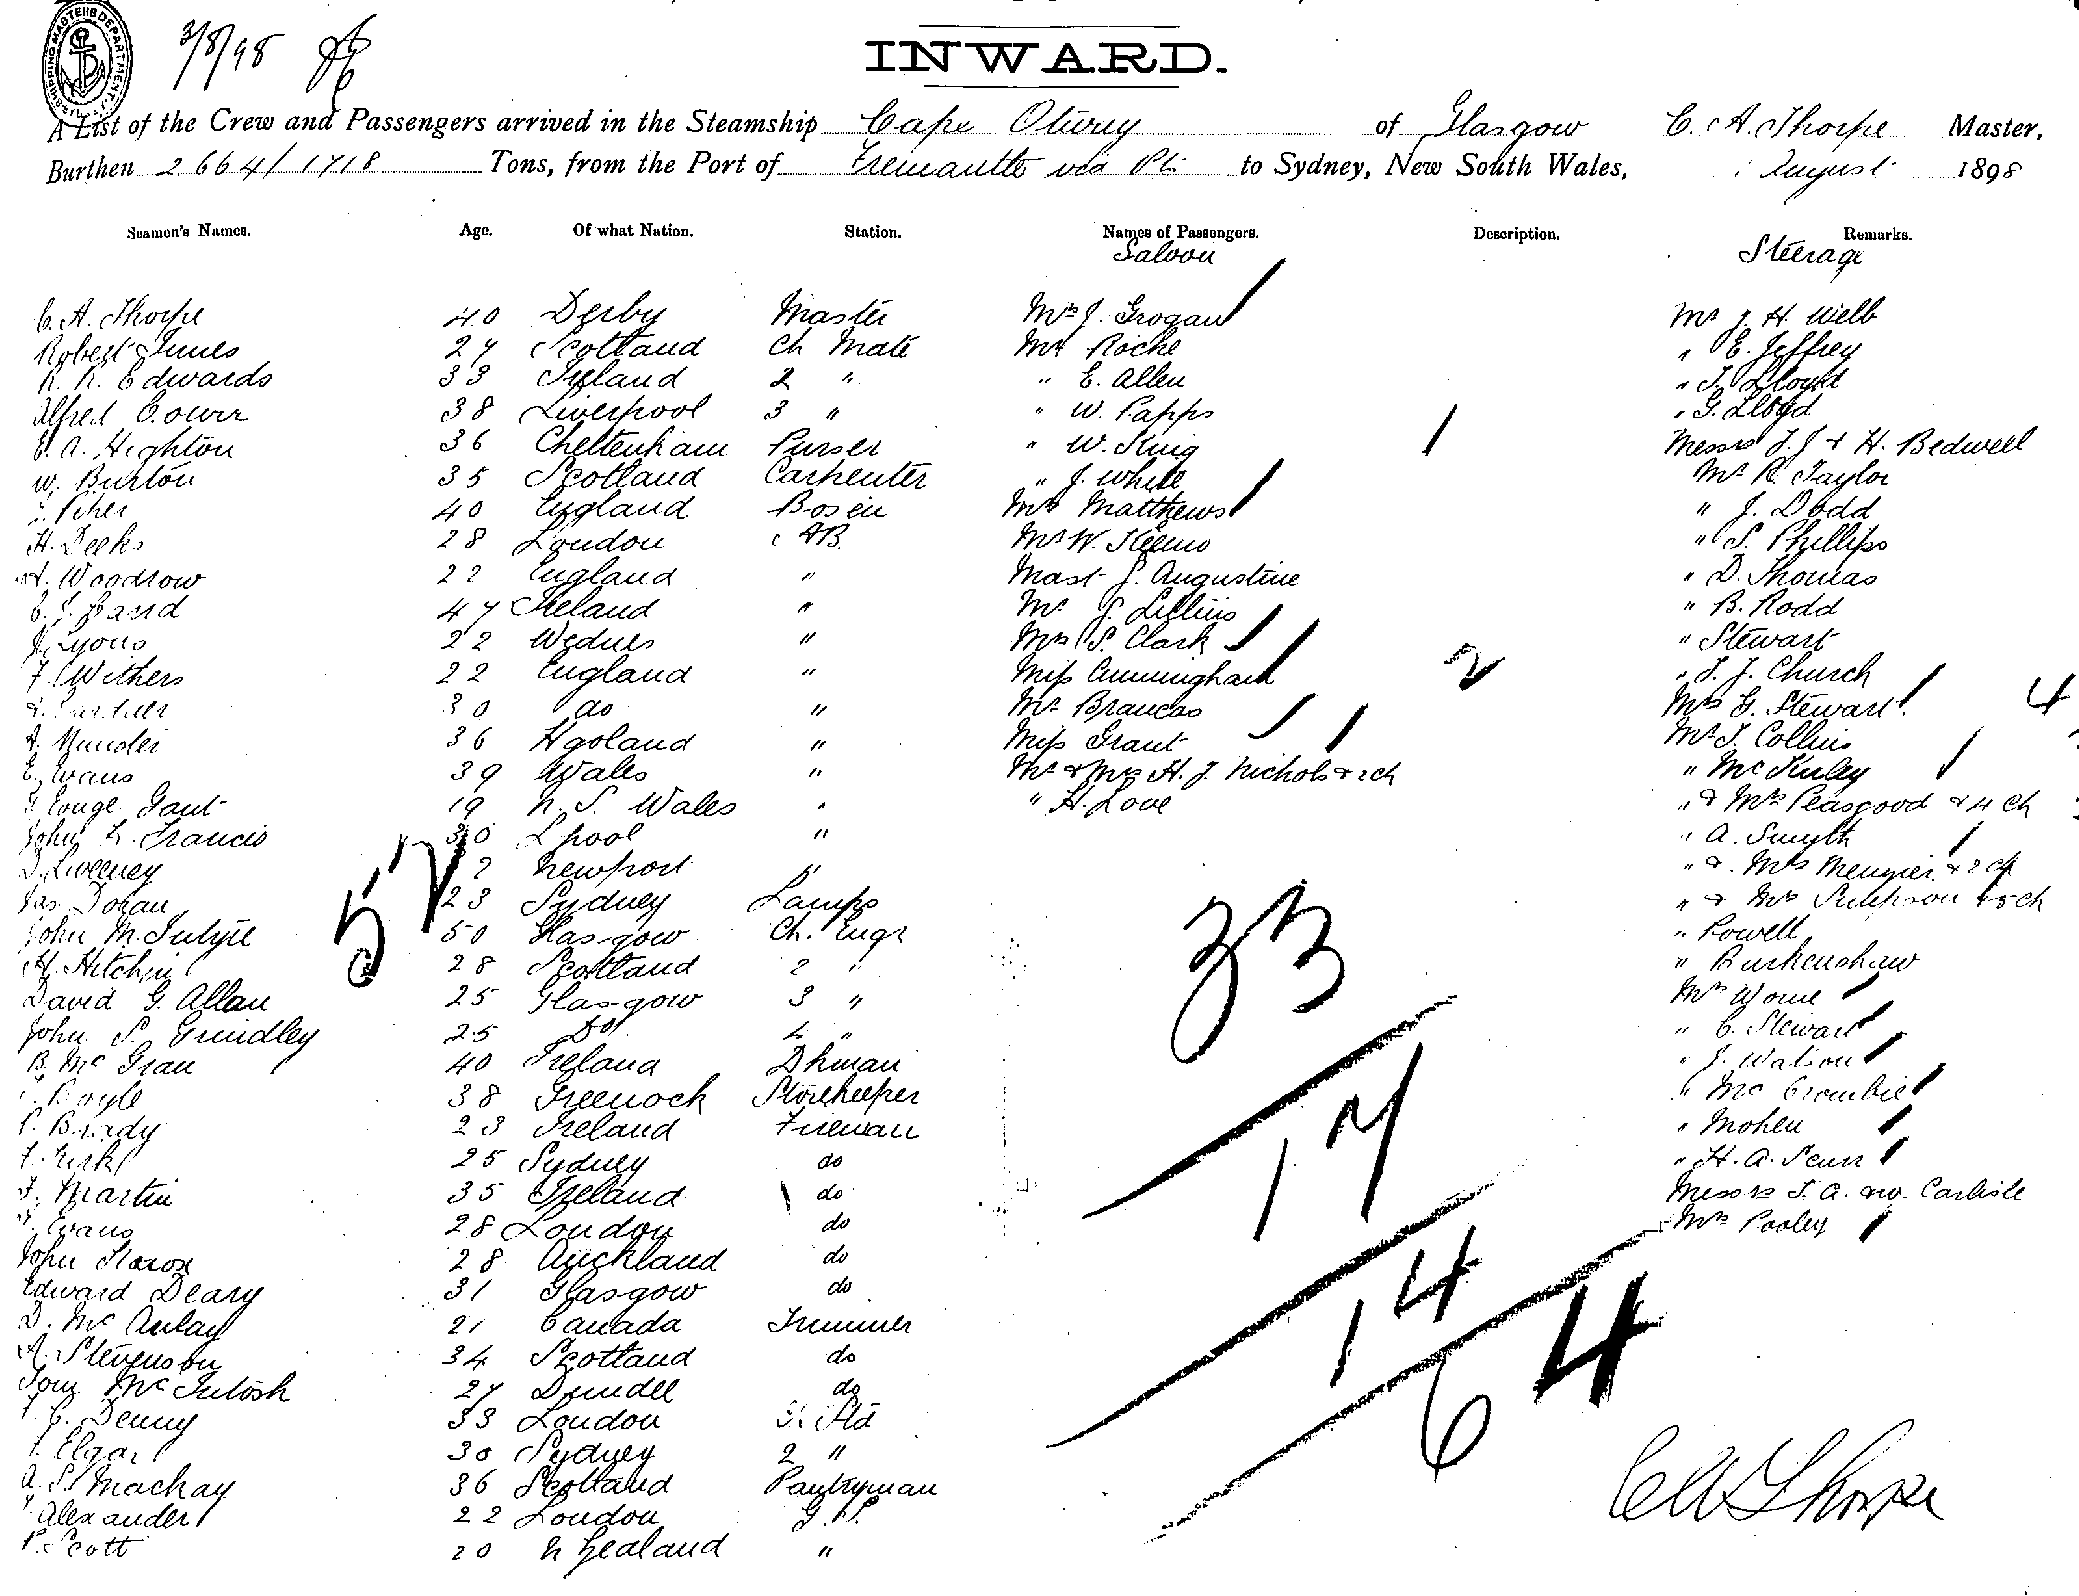 SHIPPING MASTERS DEPARTMENT
3/8/98
INWARD.
A List of the Crew and Passengers arrived in the Steamship Cape Otway of Glasgow C. A. Thorpe Master,
Burthen 2664/1718 Tons, from the Port of Fremantle via to Sydney, New South Wales, August 1898
Seamen's Names. Age. Of what Nation. Station. Names of Passengers. Description. Remarks.
Saloon Steerage
C. A. Thorpe 40 Derby Master Mrs J. Grogan Mr J. H. Webb
Robert Innes 27 Scotland Ch Mate Mr Roche " E. Jeffrey
R. R. Edwards 33 Ireland 2 " " E. Allen " T. Lloyd
Alfred Cower 38 Liverpool 3 " " W. Papps " G. Lloyd
E. A. Highton 36 Cheltenham Purser " W. King Messrs J. J & H. Bedwell
W. Burton 35 Scotland Carpenter " J. White Mr R. Taylor
40 England Bosen Mrs Matthews " J. Dodd
H. Deeks 28 London AB Mr W. " S. Phillips
Woodrow 22 England " Mast J. Augustine " D. Thomas
C. J. Baird 47 Ireland " Mr J. " B. Rodd
J. Lyons 22 " Mrs S. Clark " Stewart
F. Withers 22 England " Miss Cunningham 2 " T. J. Church
30 do " Mr Brancas Mrs G. Stewart 4
A. 36 " Miss Grant Mr T. Collins
E. Evans 39 Wales " Mr & Mrs H. J. Nichols & 2 ch " McKinley
George Gant 19 N. S. Wales " " H. Love " & Mrs Peasgood & 4 ch
John L. Francis 30 Lpool " " A. Smyth
D. Sweeney Newport " " & Mrs Menzies & 2 ch
Jas Dolan 23 Sydney Lamps " & Mrs Simpson & 5 ch
52
John McIntyre 50 Glasgow Ch. Engr " Powell
A. Hitchin 28 Scotland 2 " " Burkenshaw
33
David G. Allan 25 Glasgow 3 " Mrs
John S. Grindley 25 Do 4 " " C. Stewart
B. McGran 40 Ireland Dkman " J. Watson
Boyle 38 Greenock Storekeeper " McCrombie
P. Brady 23 Ireland Fireman " Mohen
17
F. Kirk 25 Sydney do " H. A.
F. Martin 35 Ireland do Messrs T. A. Carlisle
Evans 28 London do Mrs Pooley
John 28 Auckland do
Edward Deary 31 Glasgow do
14
D. McAulay 21 Canada Trimmer
64
A. Stevenson 34 Scotland do
Tom McIntosh 27 Dundee do
C. Denny 33 London Std
Elgar 30 Sydney 2 "
A. S. Mackay 36 Scotland Pantryman
Alexander 22 London G.S.
P. Scott 20 N Zealand "
C A Thorpe